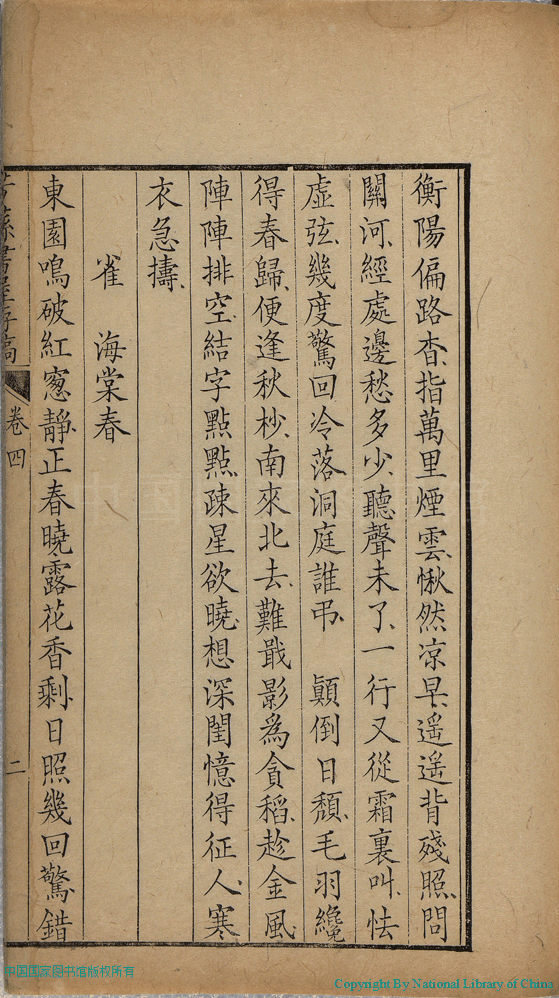 衡陽偏路杳、指萬里煙雲、愀然凉早、遥遥背殘照、問
關河、經處邊愁多少、聽聲未了、一行又從霜裏叫、怯
虛弦、幾度驚回冷落洞庭誰弔　顛倒日頹、毛羽纔
得春歸、便逢秋杪、南來北去、難戢影為貪稻、趁金風
陣陣排空、結字點點疎星欲曉、想深閨憶得征人、寒
衣急擣、
雀　海棠春
東園鳴破紅窻靜、正春曉露花香剩、日照幾回驚、錯
書屋存稿
卷四
二
中国国家图书馆版权所有
Copyright By National Library of China